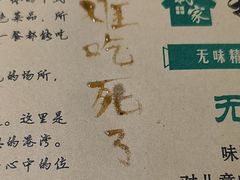 色菜品，所
一餐都能吃
的场所，
。这里是
的港湾。
心中的位
难吃死了
家
无味精
无
味
对儿童